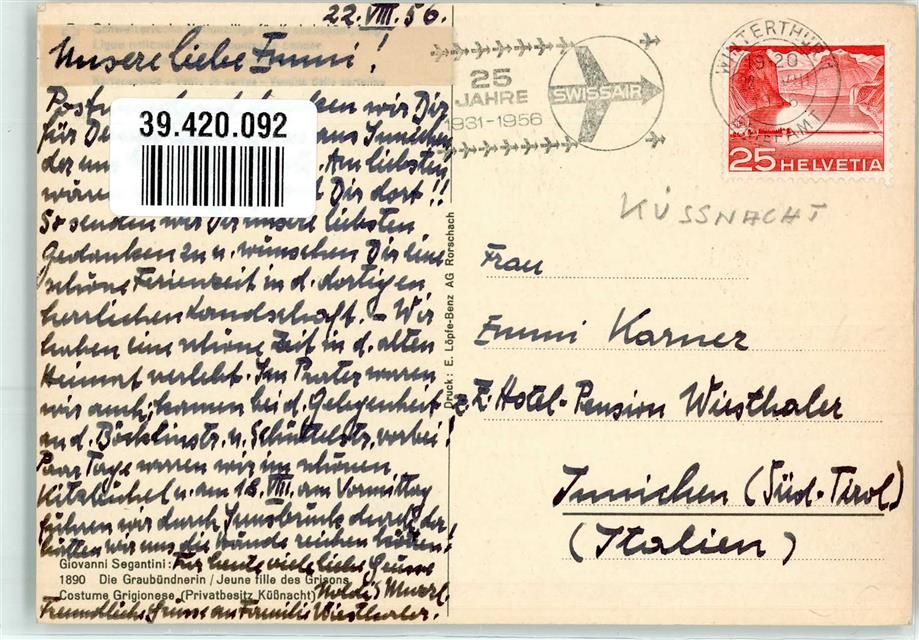 22.VIII.56.
Unsere liebe Emmi!
wir Dir
für aus Innichen
der uns Am liebsten
wären Dir dort!!
So senden wir Dir unsere liebsten
Gedanken zu u. wünschen Dir eine
schöne Ferienzeit in d. dortigen
herrlichen Landschaft. – Wir
haben eine schöne Zeit in d. alten
Heimat verlebt. Im Prater waren
wir auch, kamen bei d. Gelegenheit
an d. Böcklinstr. u. Schüttelstr. vorbei!
Paar Tage waren wir im schönen
Kitzbühel u. am 18.VIII. am Vormittag
führen wir durch Innsbruck, der
hätten wir uns die Hände reichen können!
Giovanni Segantini: Für heute viele liebe Grüsse
1890 Die Graubündnerin / Jeune fille des Grisons
Costume Grigionese (Privatbesitz Küßnacht)
Freundliche Grüsse an Familie Wiesthaler!
39.420.092
Druck: E. Löpfe-Benz AG Rorschach
25
JAHRE
1931-1956
SWISSAIR
WINTERTHUR
20
25 HELVETIA
KÜSSNACHT
Frau
Emmi Karner
z. Z. Hotel-Pension Wiesthaler
Innichen (Süd-Tirol)
(Italien)